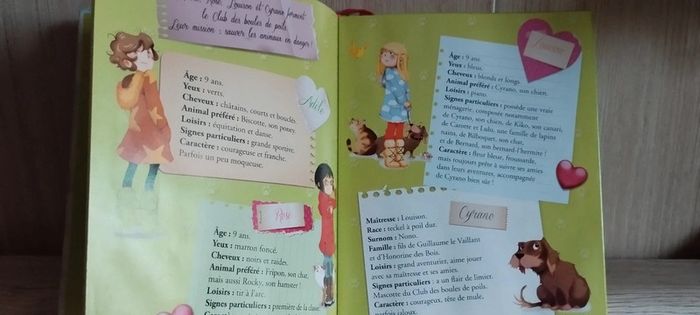 Rose, Louison et Cyrano forment
le Club des boules de poils.
Leur mission : sauver les animaux en danger !
Adèle
Âge : 9 ans.
Yeux : verts.
Cheveux : châtains, courts et bouclés.
Animal préféré : Biscotte, son poney.
Loisirs : équitation et danse.
Signes particuliers : grande sportive.
Caractère : courageuse et franche.
Parfois un peu moqueuse.
Rose
Âge : 9 ans.
Yeux : marron foncé.
Cheveux : noirs et raides.
Animal préféré : Fripon, son chat,
mais aussi Rocky, son hamster !
Loisirs : tir à l'arc.
Signes particuliers : première de la classe.
Louison
Âge : 9 ans.
Yeux : bleus.
Cheveux : blonds et longs.
Animal préféré : Cyrano, son chien.
Loisirs : piano.
Signes particuliers : possède une vraie
ménagerie, composée notamment
de Cyrano, son chien, de Kiko, son canari,
de Carotte et Lulu, une famille de lapins
nains, de Bilboquet, son chat,
et de Bernard, son bernard-l'hermite !
Caractère : fleur bleue, froussarde,
mais toujours prête à suivre ses amies
dans leurs aventures, accompagnée
de Cyrano bien sûr !
Cyrano
Maîtresse : Louison.
Race : teckel à poil dur.
Surnom : Nono.
Famille : fils de Guillaume le Vaillant
et d'Honorine des Bois.
Loisirs : grand aventurier, aime jouer
avec sa maîtresse et ses amies.
Signes particuliers : a un flair de limier.
Mascotte du Club des boules de poils.
Caractère : courageux, tête de mule,
parfois jaloux.